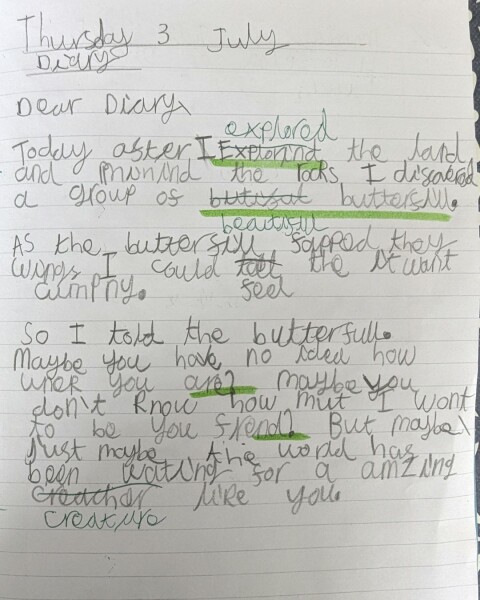 Thursday 3 July
Diary
Dear Diary,
explored
Today after I Exploring the land
and the rocks I discovered
a group of butiful butterfill.
beautifull
As the butterfill fapped they
wings I could fell the it want
feel
So I told the butterfull.
Maybe you have no idea how
you are? maybe you
don't know how mut I want
to be you frend? But maybe,
just maybe the world has
been waiting for a amzing
creacher like you.
creature